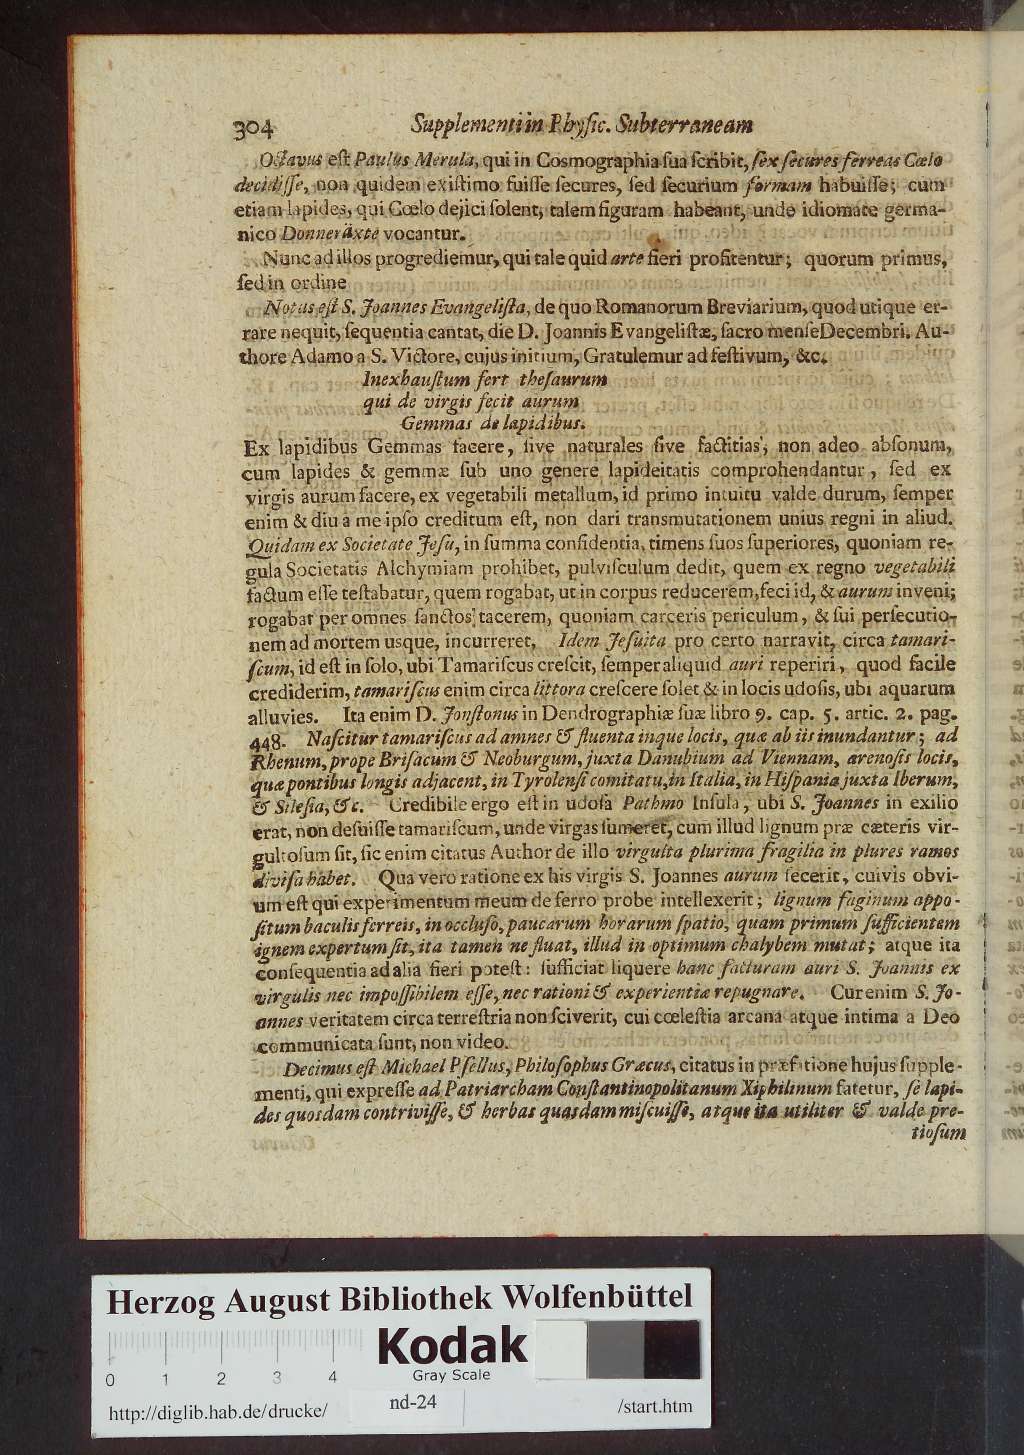 304 Supplementi in Physic. Subterraneam
Octavus eſt Paulus Merula, qui in Cosmographia ſua ſcribit, ſex ſecures ferreas Cœlo
decidiſſe, non quidem exiſtimo fuiſſe ſecures, ſed ſecurium formam habuiſſe; cum
etiam lapides, qui Cœlo dejici ſolent, talem figuram habeant, unde idiomate germa-
nico Donneräxte vocantur.
Nunc ad illos progrediemur, qui tale quid arte fieri profitentur; quorum primus,
ſed in ordine
Notus eſt S. Joannes Evangeliſta, de quo Romanorum Breviarium, quod utique er-
rare nequit, ſequentia cantat, die D. Joannis Evangeliſtæ, ſacro menſe Decembri. Au-
thore Adamo a S. Victore, cujus initium, Gratulemur ad feſtivum, &c.
Inexhauſtum fert theſaurum
qui de virgis fecit aurum
Gemmas de lapidibus.
Ex lapidibus Gemmas facere, ſive naturales ſive factitias, non adeo abſonum,
cum lapides & gemmæ ſub uno genere lapideitatis comprohendantur, ſed ex
virgis aurum facere, ex vegetabili metallum, id primo intuitu valde durum, ſemper
enim & diu a me ipſo creditum eſt, non dari transmutationem unius regni in aliud.
Quidam ex Societate Jeſu, in ſumma confidentia, timens ſuos ſuperiores, quoniam re-
gula Societatis Alchymiam prohibet, pulviſculum dedit, quem ex regno vegetabili
factum eſſe teſtabatur, quem rogabat, ut in corpus reducerem, feci id, & aurum inveni;
rogabat per omnes ſanctos tacerem, quoniam carceris periculum, & ſui perſecutio-
nem ad mortem usque, incurreret, Idem Jeſuita pro certo narravit, circa tamari-
ſcum, id eſt in ſolo, ubi Tamariſcus creſcit, ſemper aliquid auri reperiri, quod facile
crediderim, tamariſcus enim circa littora creſcere ſolet & in locis udoſis, ubi aquarum
alluvies. Ita enim D. Jonſtonus in Dendrographiæ ſuæ libro 9. cap. 5. artic. 2. pag.
448. Naſcitur tamariſcus ad amnes & fluenta inque locis, quæ ab iis inundantur; ad
Rhenum, prope Briſacum & Neoburgum, juxta Danubium ad Viennam, arenoſis locis,
quæ pontibus longis adjacent, in Tyrolenſi comitatu, in Italia, in Hiſpania juxta Iberum,
& Sileſia, &c. Credibile ergo eſt in udoſa Pathmo Inſula, ubi S. Joannes in exilio
erat, non defuiſſe tamariſcum, unde virgas ſumeret, cum illud lignum præ cæteris vir-
gultoſum ſit, ſic enim citatus Author de illo virgulta plurima fragilia in plures ramos
diviſa habet. Qua vero ratione ex his virgis S. Joannes aurum fecerit, cuivis obvi-
um eſt qui experimentum meum de ferro probe intellexerit; lignum faginum appo-
ſitum baculis ferreis, in occluſo, paucarum horarum ſpatio, quam primum ſufficientem
ignem expertum ſit, ita tamen ne fluat, illud in optimum chalybem mutat; atque ita
conſequentia ad alia fieri poteſt: ſufficiat liquere hanc facturam auri S. Joannis ex
virgulis nec impoſſibilem eſſe, nec rationi & experientiæ repugnare. Cur enim S. Jo-
annes veritatem circa terreſtria non ſciverit, cui cœleſtia arcana atque intima a Deo
communicata ſunt, non video.
Decimus eſt Michael Pſellus, Philoſophus Græcus, citatus in præfatione hujus ſupple-
menti, qui expreſſe ad Patriarcham Conſtantinopolitanum Xiphilinum fatetur, ſe lapi-
des quosdam contriviſſe, & herbas quasdam miſcuiſſe, atque ita utiliter & valde pre-
tioſum
Herzog August Bibliothek Wolfenbüttel
Kodak
Gray Scale
0 1 2 3 4
http://diglib.hab.de/drucke/ nd-24 /start.htm